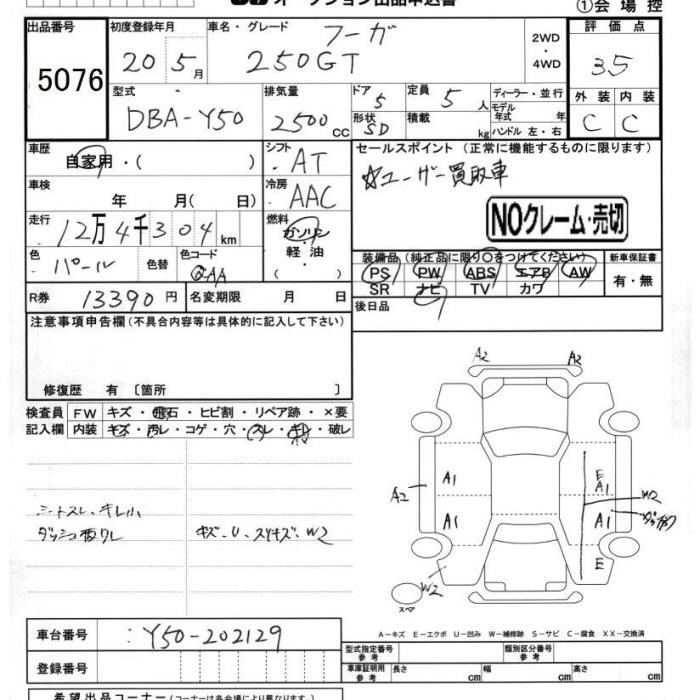 オークション出品申込書
①会場控
出品番号 初度登録年月 車名・グレード フーガ 2WD・4WD 評価点
5076 20 5月 250GT 3.5
型式 排気量 ドア 5 定員 5人 ディーラー・並行 外装 内装
DBA-Y50 2500CC 形状 SD 積載 kg モデル年式 年 ハンドル 左・右 C C
車歴 自家用・( ) シフト AT セールスポイント (正常に機能するものに限ります)
車検 年 月( 日) 冷房 AAC ☆ユーザー買取車
NOクレーム・売切
走行 12万4千304km 燃料 ガソリン・軽油・( )
色 パール 色替 色コード QAA 装備品(純正品に限り○をつけてください) 新車保証書
PS PW ABS エアB AW 有・無
R券 13390円 名変期限 月 日 SR ナビ TV カワ
後日品
注意事項申告欄(不具合内容等は具体的に記入して下さい)
修復歴 有 〔箇所 〕
検査員 FW キズ・飛石・ヒビ割・リペア跡・×要
記入欄 内装 キズ・汚レ・コゲ・穴・スレ・キレ・破レ
A2 A2
A1 E A1
A2 W2
A1 A1
E
W2
シートスレ・キレ小
キズ・U・スリキズ・W2
スペア
A-キズ E-エクボ U-凹み W-補修跡 S-サビ C-腐食 XX-交換済
車台番号 Y50-202129
型式指定番号 参考 類別区分番号 参考
登録番号 車庫証明用 参考 長さ cm 幅 cm 高さ cm
希望出品コーナー(コーナーは各会場により異なります。)